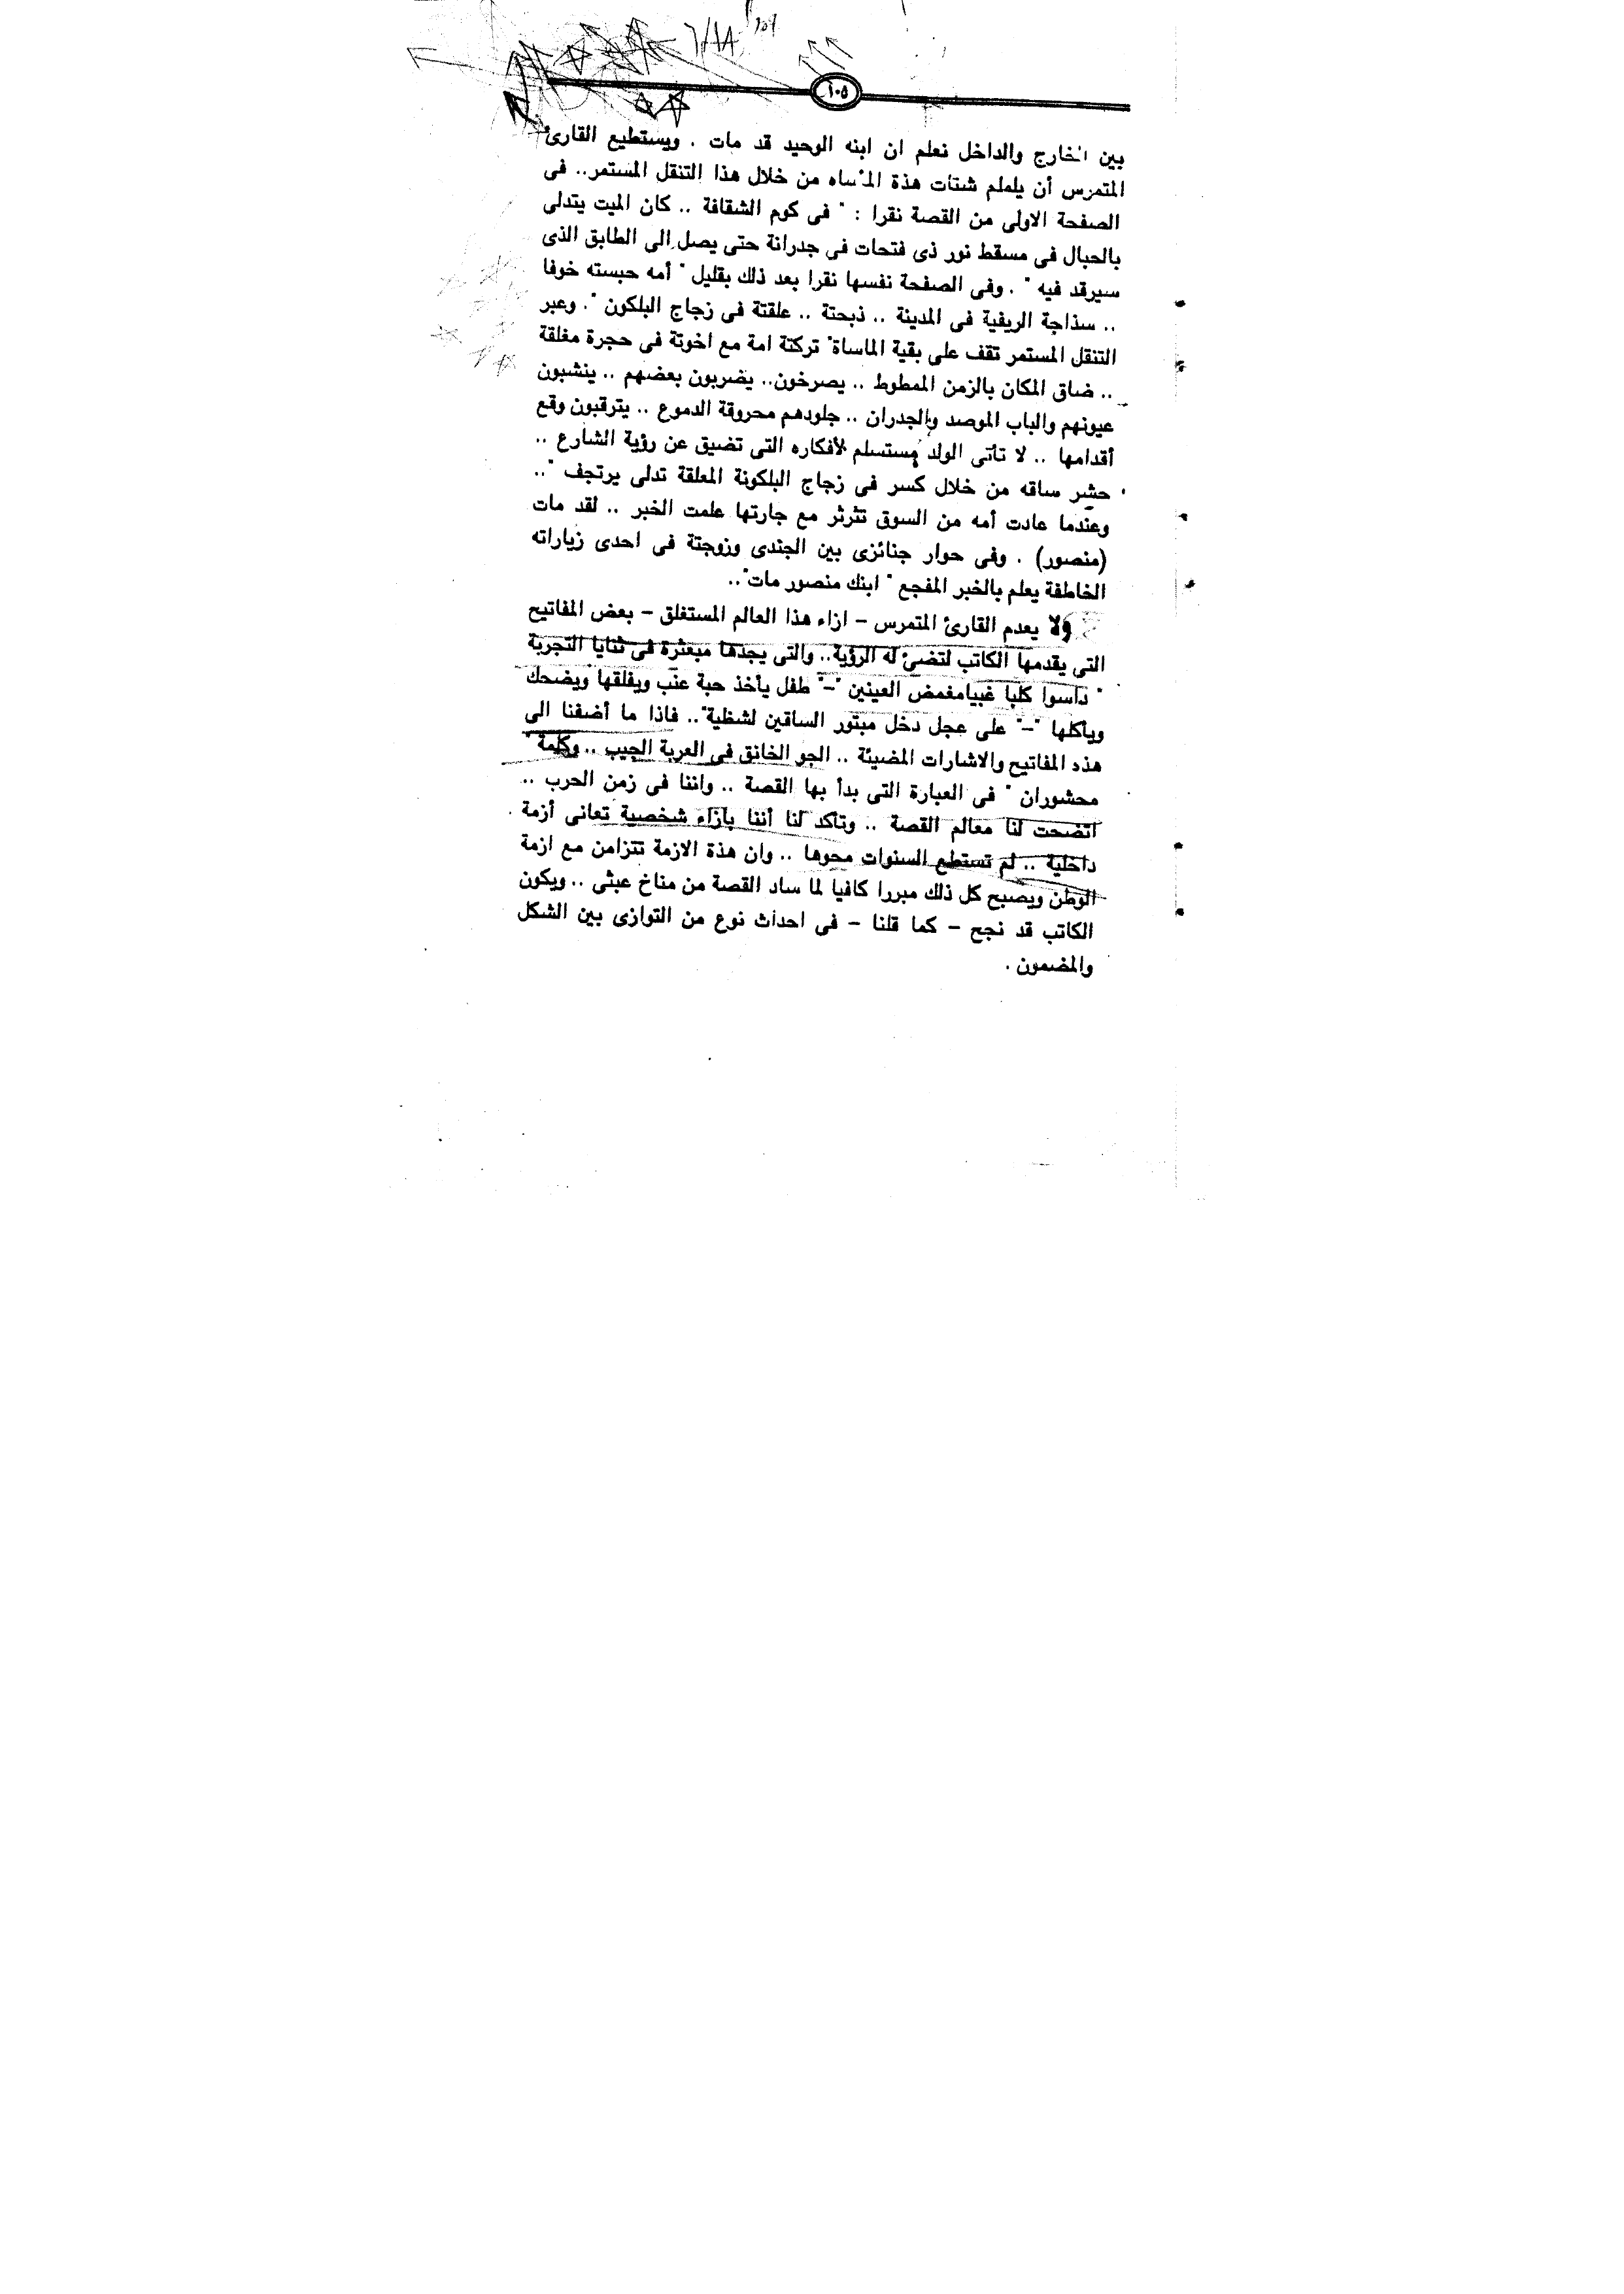 ١٠٥
بين الخارج والداخل نعلم ان ابنه الوحيد قد مات . ويستطيع القارئ
المتمرس أن يلملم شتات هذة المأساه من خلال هذا التنقل المستمر.. فى
الصفحة الاولى من القصة نقرا : " فى كوم الشقافة .. كان الميت يتدلى
بالحبال فى مسقط نور ذى فتحات فى جدرانة حتى يصل الى الطابق الذى
سيرقد فيه " . وفى الصفحة نفسها نقرا بعد ذلك بقليل " أمه حبسته خوفا
.. سذاجة الريفية فى المدينة .. ذبحتة .. علقتة فى زجاج البلكون ". وعبر
التنقل المستمر تقف على بقية الماساة" تركتة امة مع اخوتة فى حجرة مغلقة
.. ضاق المكان بالزمن الممطوط .. يصرخون.. يضربون بعضهم .. ينشبون
عيونهم والباب الموصد والجدران .. جلودهم محروقة الدموع .. يترقبون وقع
أقدامها .. لا تأتى الولد مستسلم لأفكاره التى تضيق عن رؤية الشارع ..
حشر ساقه من خلال كسر فى زجاج البلكونة المعلقة تدلى يرتجف "..
وعندما عادت أمه من السوق تثرثر مع جارتها علمت الخبر .. لقد مات
(منصور) . وفى حوار جنائزى بين الجندى وزوجتة فى احدى زياراته
الخاطفة يعلم بالخبر المفجع " ابنك منصور مات"..
ولا يعدم القارئ المتمرس – ازاء هذا العالم المستغلق – بعض المفاتيح
التى يقدمها الكاتب لتضئ له الرؤية.. والتى يجدها مبعثرة فى ثنايا التجربة
" داسوا كلبا غبيامغمض العينين "–" طفل يأخذ حبة عنب ويفلقها ويضحك
وياكلها "–" على عجل دخل مبتور الساقين لشظية".. فاذا ما أضفنا الى
هذه المفاتيح والاشارات المضيئة .. الجو الخانق فى العربة الجيب .. وكلمة "
محشوران " فى العبارة التى بدأ بها القصة .. واننا فى زمن الحرب ..
اتضحت لنا معالم القصة .. وتأكد لنا أننا بازاء شخصية تعانى أزمة
داخلية .. لم تستطع السنوات محوها .. وان هذة الازمة تتزامن مع ازمة
الوطن ويصبح كل ذلك مبررا كافيا لما ساد القصة من مناخ عبثى .. ويكون
الكاتب قد نجح – كما قلنا – فى احداث نوع من التوازى بين الشكل
والمضمون .